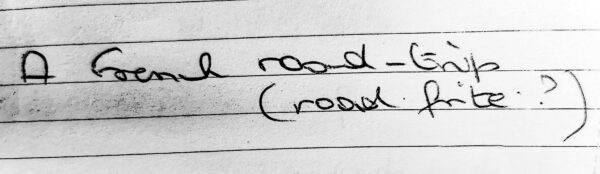 A French road-trip
(road frite?)